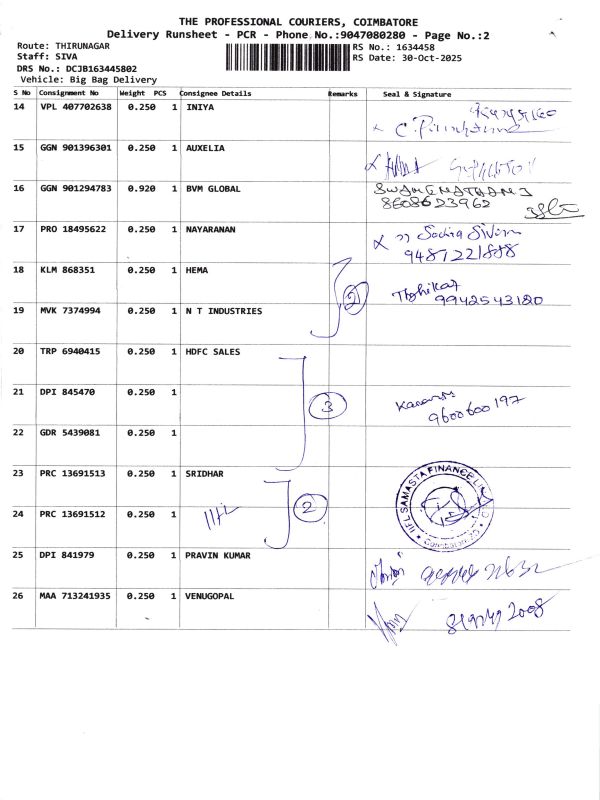 THE PROFESSIONAL COURIERS, COIMBATORE
Delivery Runsheet - PCR - Phone No.:9047080280 - Page No.:2
Route: THIRUNAGAR
RS No.: 1634458
Staff: SIVA
RS Date: 30-Oct-2025
DRS No.: DCJB163445802
Vehicle: Big Bag Delivery
S No Consignment No Weight PCS Consignee Details Remarks Seal & Signature
14 VPL 407702638 0.250 1 INIYA
15 GGN 901396301 0.250 1 AUXELIA
16 GGN 901294783 0.920 1 BVM GLOBAL
8608623962
17 PRO 18495622 0.250 1 NAYARANAN
9487221888
18 KLM 868351 0.250 1 HEMA
2
9942543180
19 MVK 7374994 0.250 1 N T INDUSTRIES
20 TRP 6940415 0.250 1 HDFC SALES
21 DPI 845470 0.250 1
3
9600600197
22 GDR 5439081 0.250 1
23 PRC 13691513 0.250 1 SRIDHAR
IIFL SAMASTA FINANCE
24 PRC 13691512 0.250 1
2
25 DPI 841979 0.250 1 PRAVIN KUMAR
26 MAA 713241935 0.250 1 VENUGOPAL